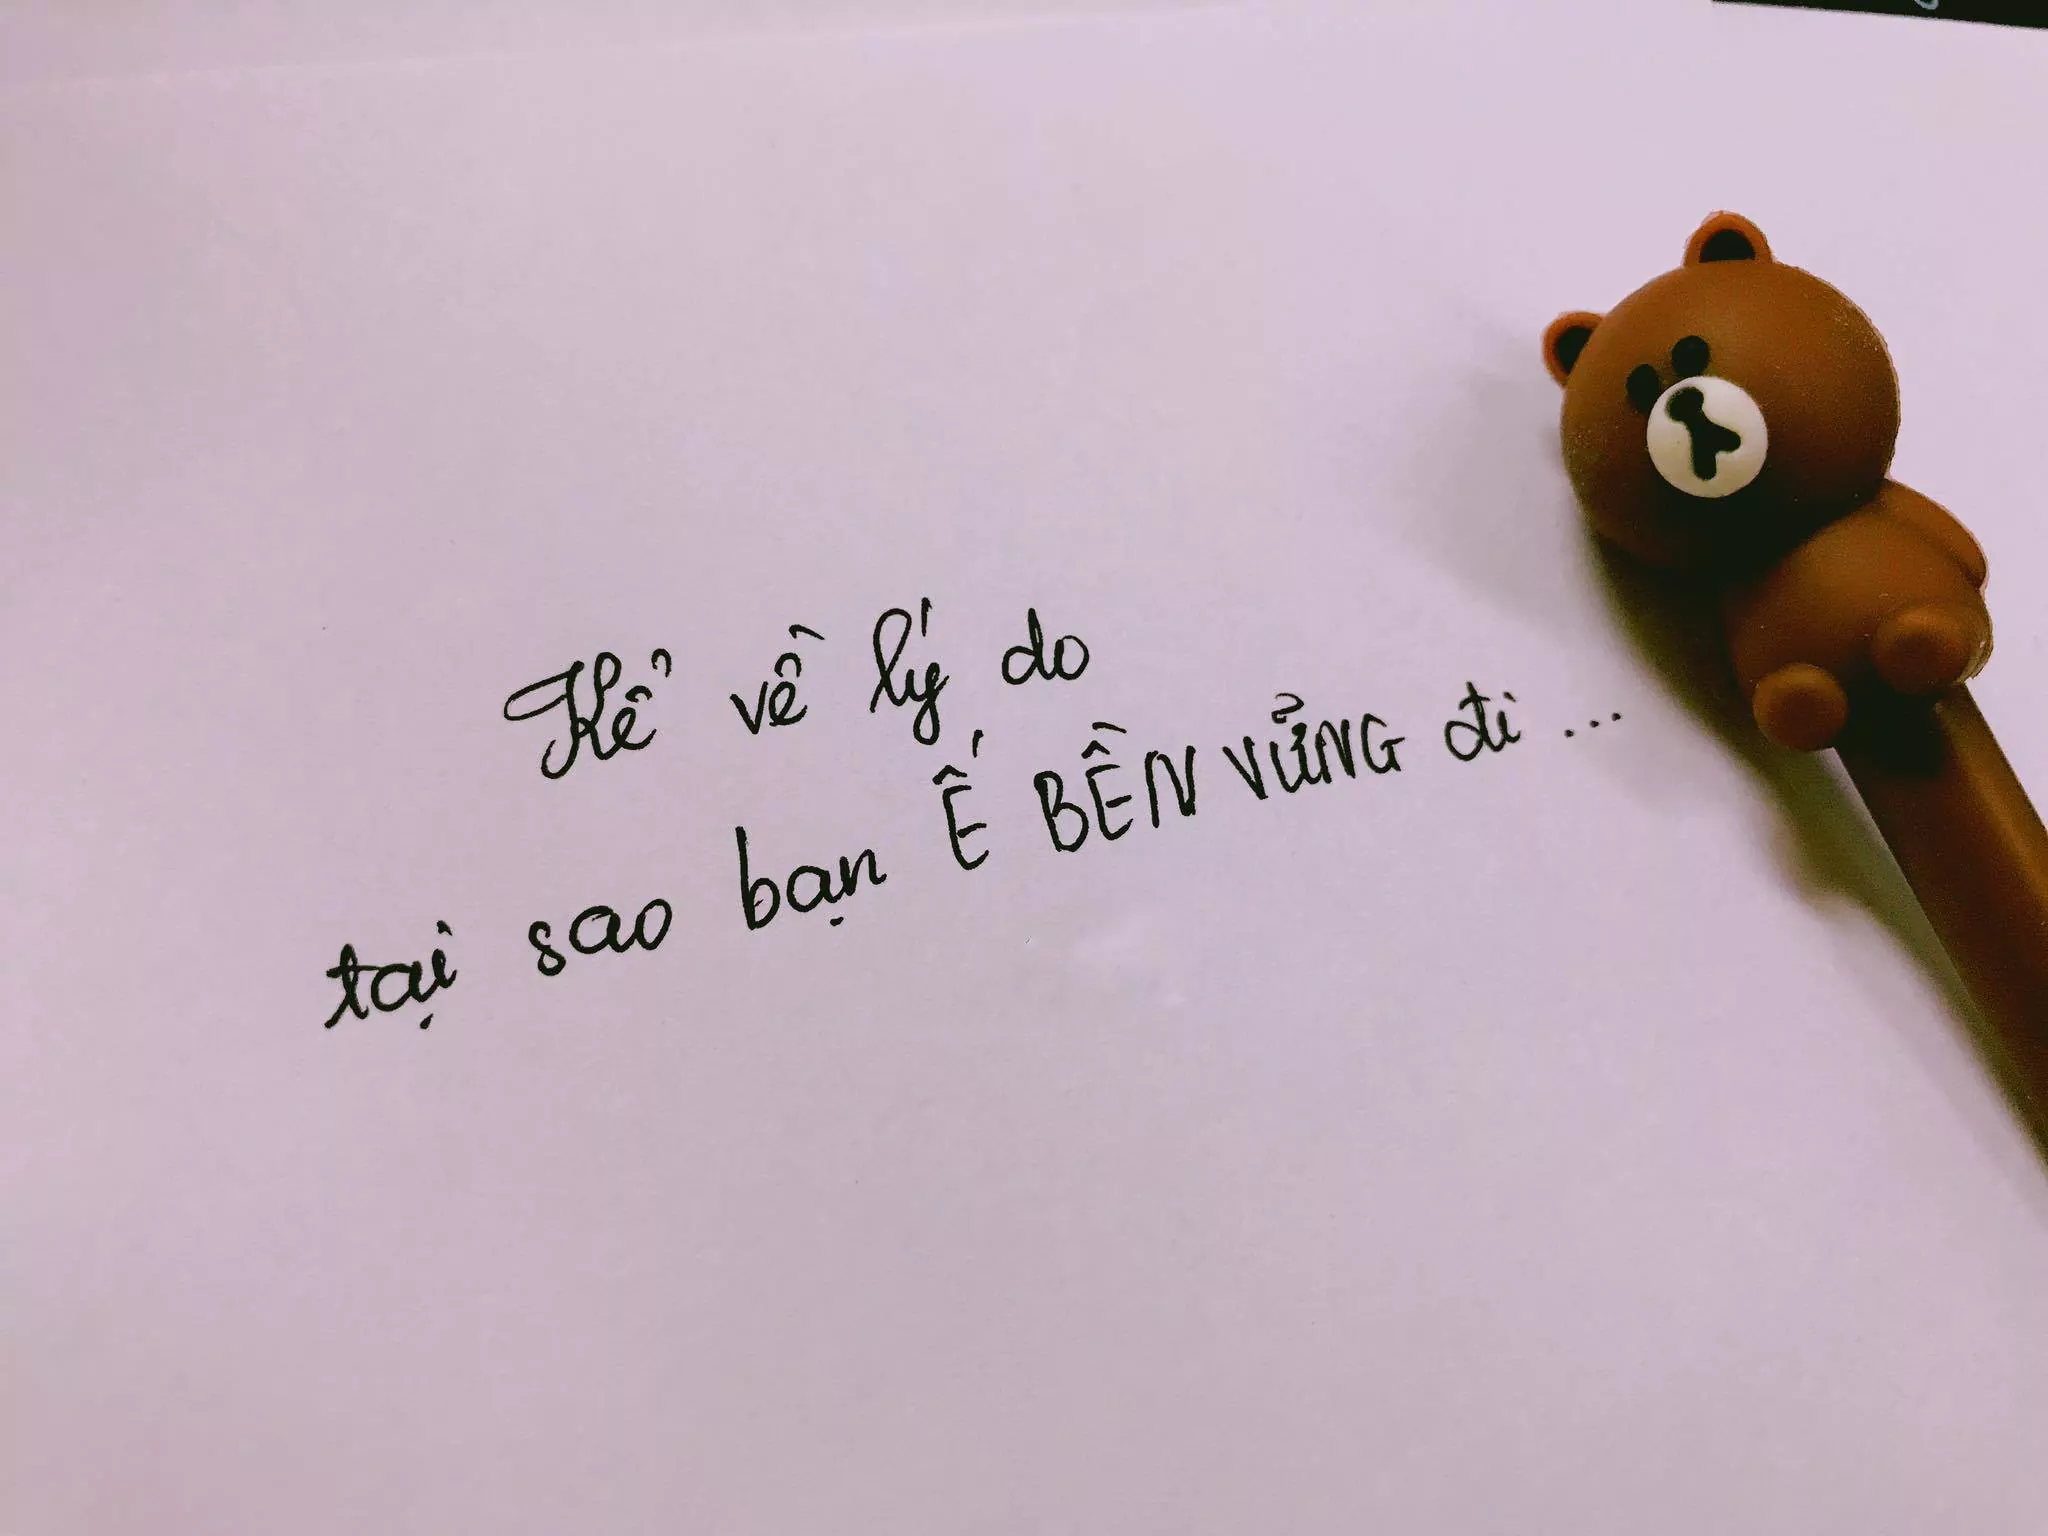 Kể về lý do
tại sao bạn Ế BỀN VỬNG đi ...